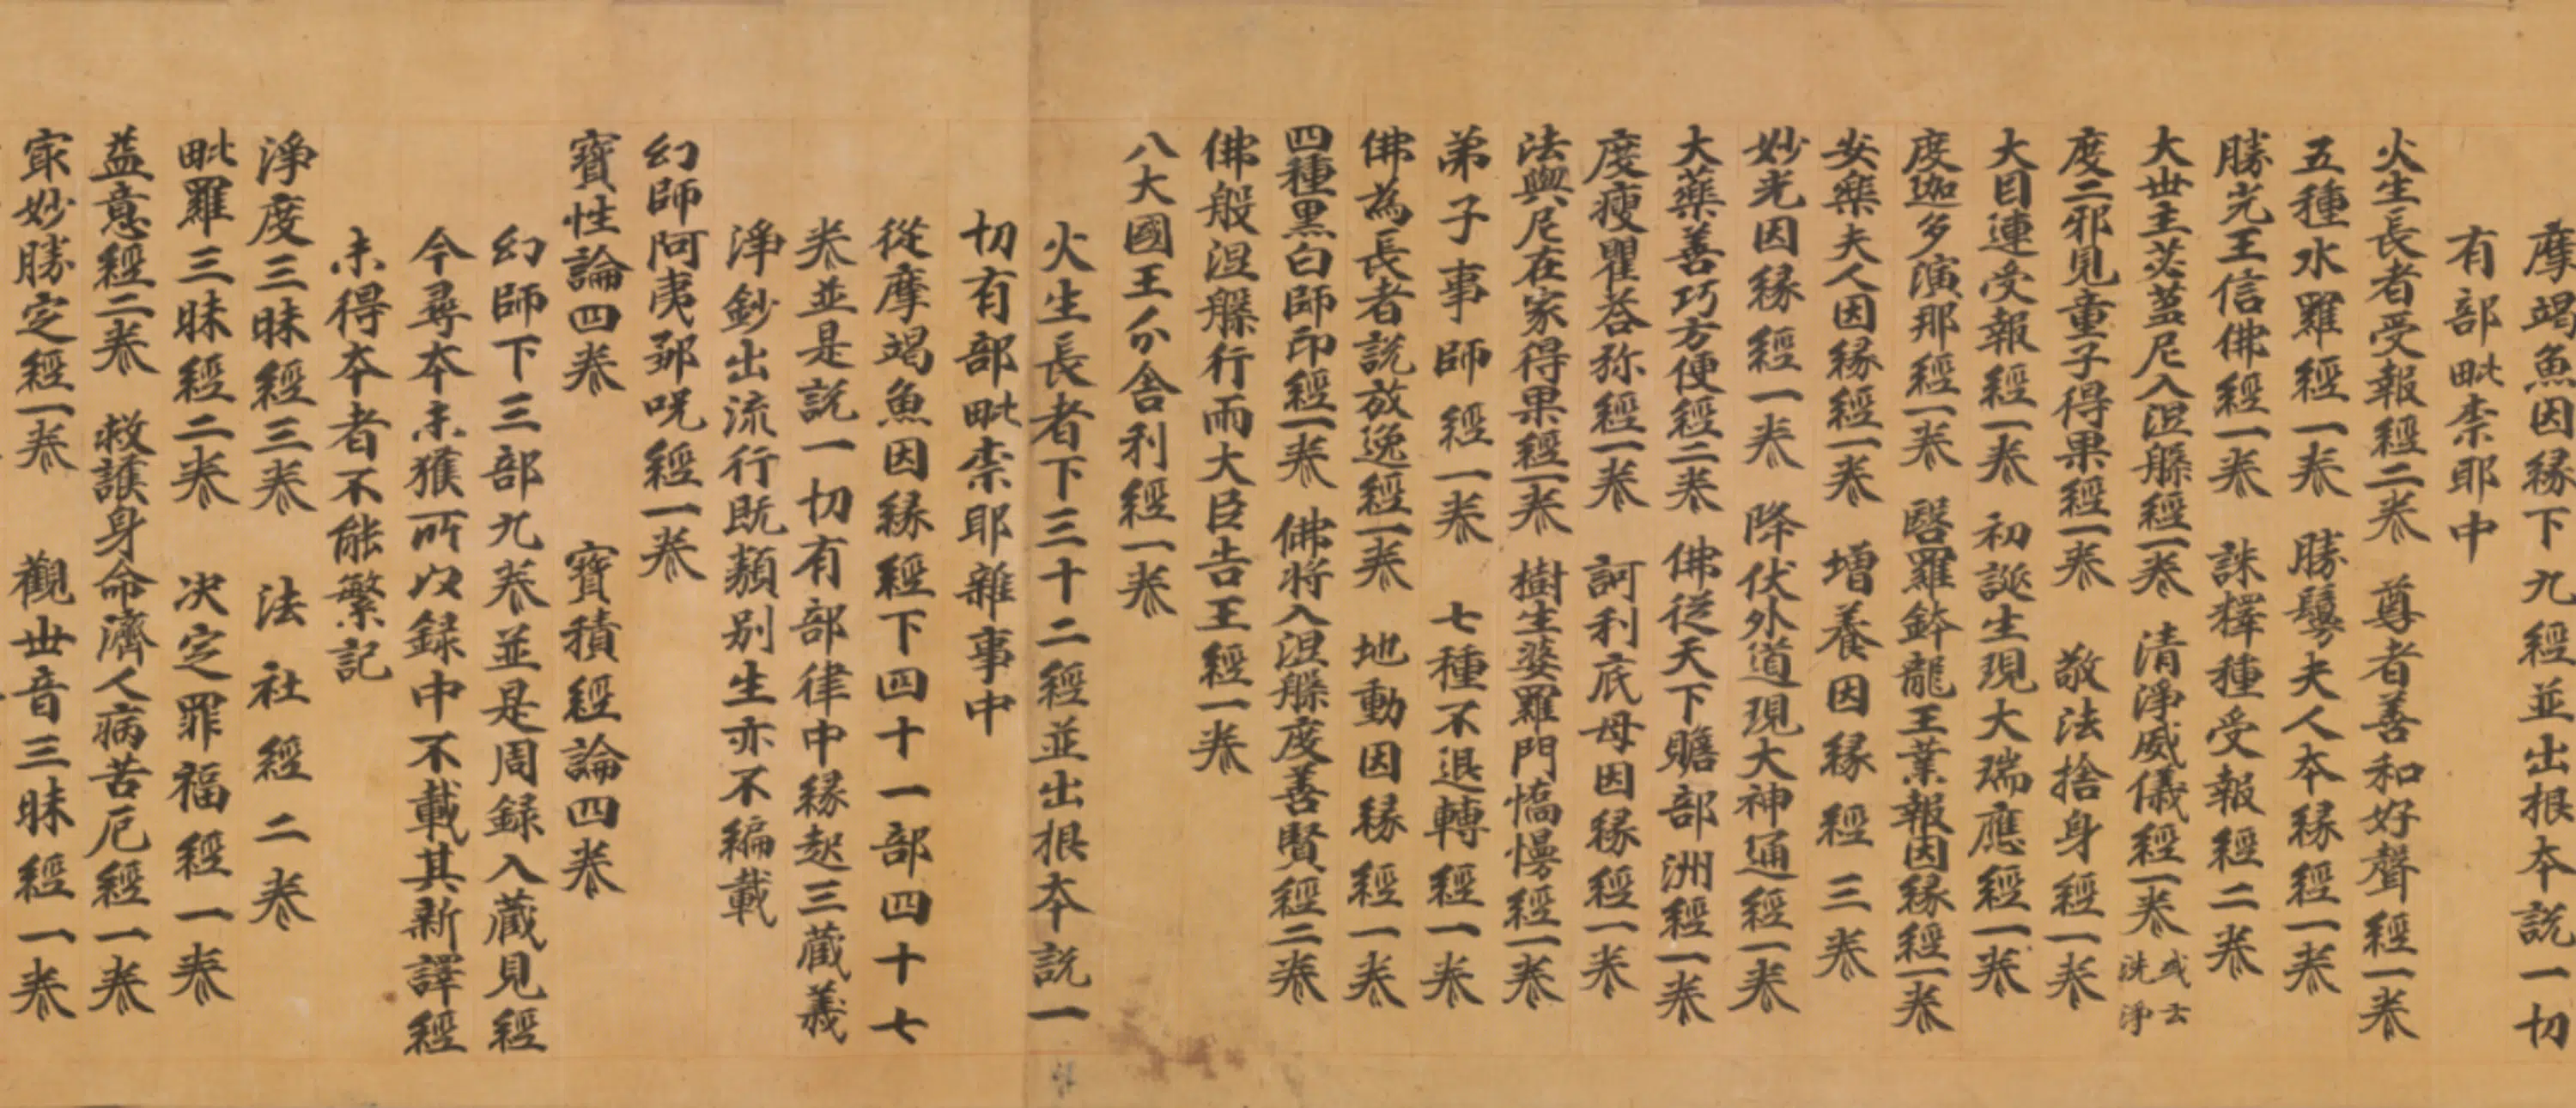 摩竭魚因緣下九經並出根本說一切
有部毗柰耶中
火生長者受報經二卷 尊者善和好聲經一卷
五種水羅經一卷 勝鬘夫人本緣經一卷
勝光王信佛經一卷 誅釋種受報經二卷
大世主苾蒭尼入涅槃經一卷 清淨威儀經一卷 或云洗淨
度二邪見童子得果經一卷 敬法捨身經一卷
大目連受報經一卷 初誕生現大瑞應經一卷
度迦多演那經一卷 醫羅鉢龍王業報因緣經一卷
安樂夫人因緣經一卷 增養因緣經三卷
妙光因緣經一卷 降伏外道現大神通經一卷
大藥善巧方便經二卷 佛從天下贍部洲經一卷
度瘦瞿荅弥經一卷 訶利底母因緣經一卷
法與尼在家得果經一卷 樹生婆羅門憍慢經一卷
弟子事師經一卷 七種不退轉經一卷
佛為長者說放逸經一卷 地動因緣經一卷
四種黑白師印經一卷 佛將入涅槃度善賢經二卷
佛般涅槃行雨大臣告王經一卷
八大國王分舍利經一卷
火生長者下三十二經並出根本說一
切有部毗柰耶雜事中
從摩竭魚因緣經下四十一部四十七
卷並是說一切有部律中緣起三藏義
淨鈔出流行既類別生亦不編載
幻師阿夷鄒呪經一卷
寶性論四卷 寶積經論四卷
幻師下三部九卷並是周録入藏見經
今尋本未獲所以録中不載其新譯經
未得本者不能繁記
淨度三昧經三卷 法社經二卷
毗羅三昧經二卷 決定罪福經一卷
益意經二卷 救護身命濟人病苦厄經一卷
寂妙勝定經一卷 觀世音三昧經一卷